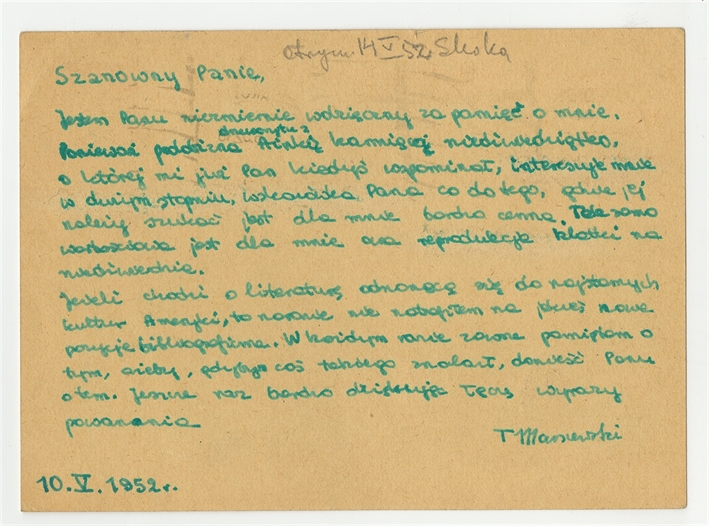 otrzym. 14 V 52r. Słoka
Szanowny Panie,
Jestem Panu niezmiernie wdzięczny za pamięć o mnie.
Ponieważ podobizna Ainki karmiącej niedźwiedziątko,
o której mi już Pan kiedyś wspominał, interesuje mnie
w dużym stopniu, wskazówka Pana co do tego, gdzie jej
należy szukać jest dla mnie bardzo cenna. Tak samo
wartościowa jest dla mnie owa reprodukcja klatki na
niedźwiedzie.
Jeżeli chodzi o literaturę odnoszącą się do najstarszych
kultur Ameryki, to na razie nie natrafiłem na jakieś nowe
pozycje bibliograficzne. W każdym razie zawsze pamiętam o
tym, ażeby, gdybym coś takiego znalazł, donieść Panu
o tem. Jeszcze raz bardzo dziękuję łączę wyrazy
poważania
T Marszewski
10.V.1952r.